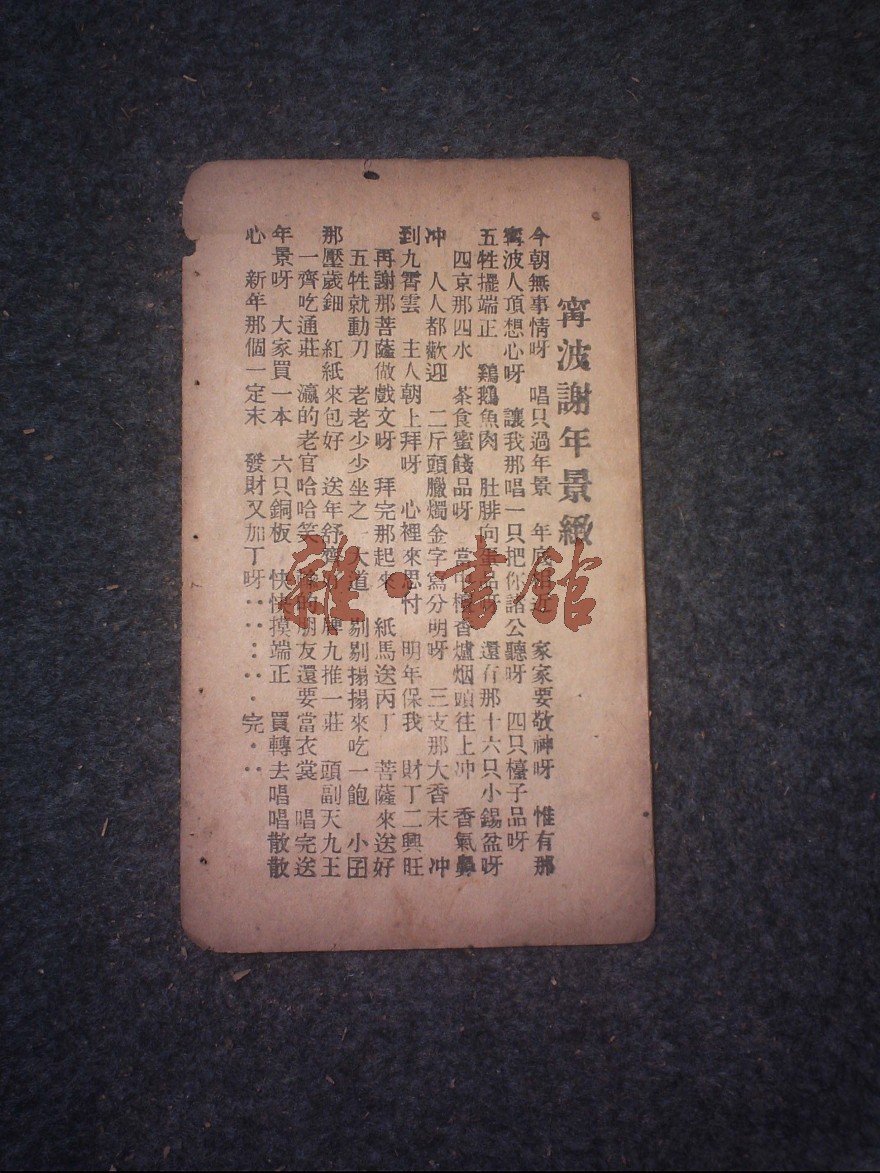 甯波謝年景緻
今朝無事情呀 唱只過年景 年底 近 家家要敬神呀 惟有那
甯波人頂想心呀 讓我那唱一只把你諸公聽呀 四只檯子品呀
五牲擺端正 鷄鵝魚肉 肚腓向 品 還有那十六只小錫盆呀
四京那四水 茶食蜜餞品呀 當中檀香爐烟頭往上冲 香氣鼻
冲 人人都歡迎 二斤頭臘燭金字寫分明呀 三支那大香末 冲
到九霄雲 主人朝上拜呀 心裡來思忖 明年保我 財丁二興旺
再謝那菩薩做戲文呀 拜完那起來 紙馬送丙丁 菩薩來送好
五牲就動刀 老老少少坐之一大道 剔剔搨搨來吃一飽 小囝
那壓歲鈿 紅紙來包好 送年舒齊 牌九推一莊 頭副天九王
一齊吃通莊 瀛的老官哈哈笑 的朋友還要當衣裳 唱完送
年景呀 大家買一本 六只銅板 快快摸端正 買轉去唱唱散散
心 新年那個一定末 發財又加丁呀⋯⋯⋯完⋯
雜·書館